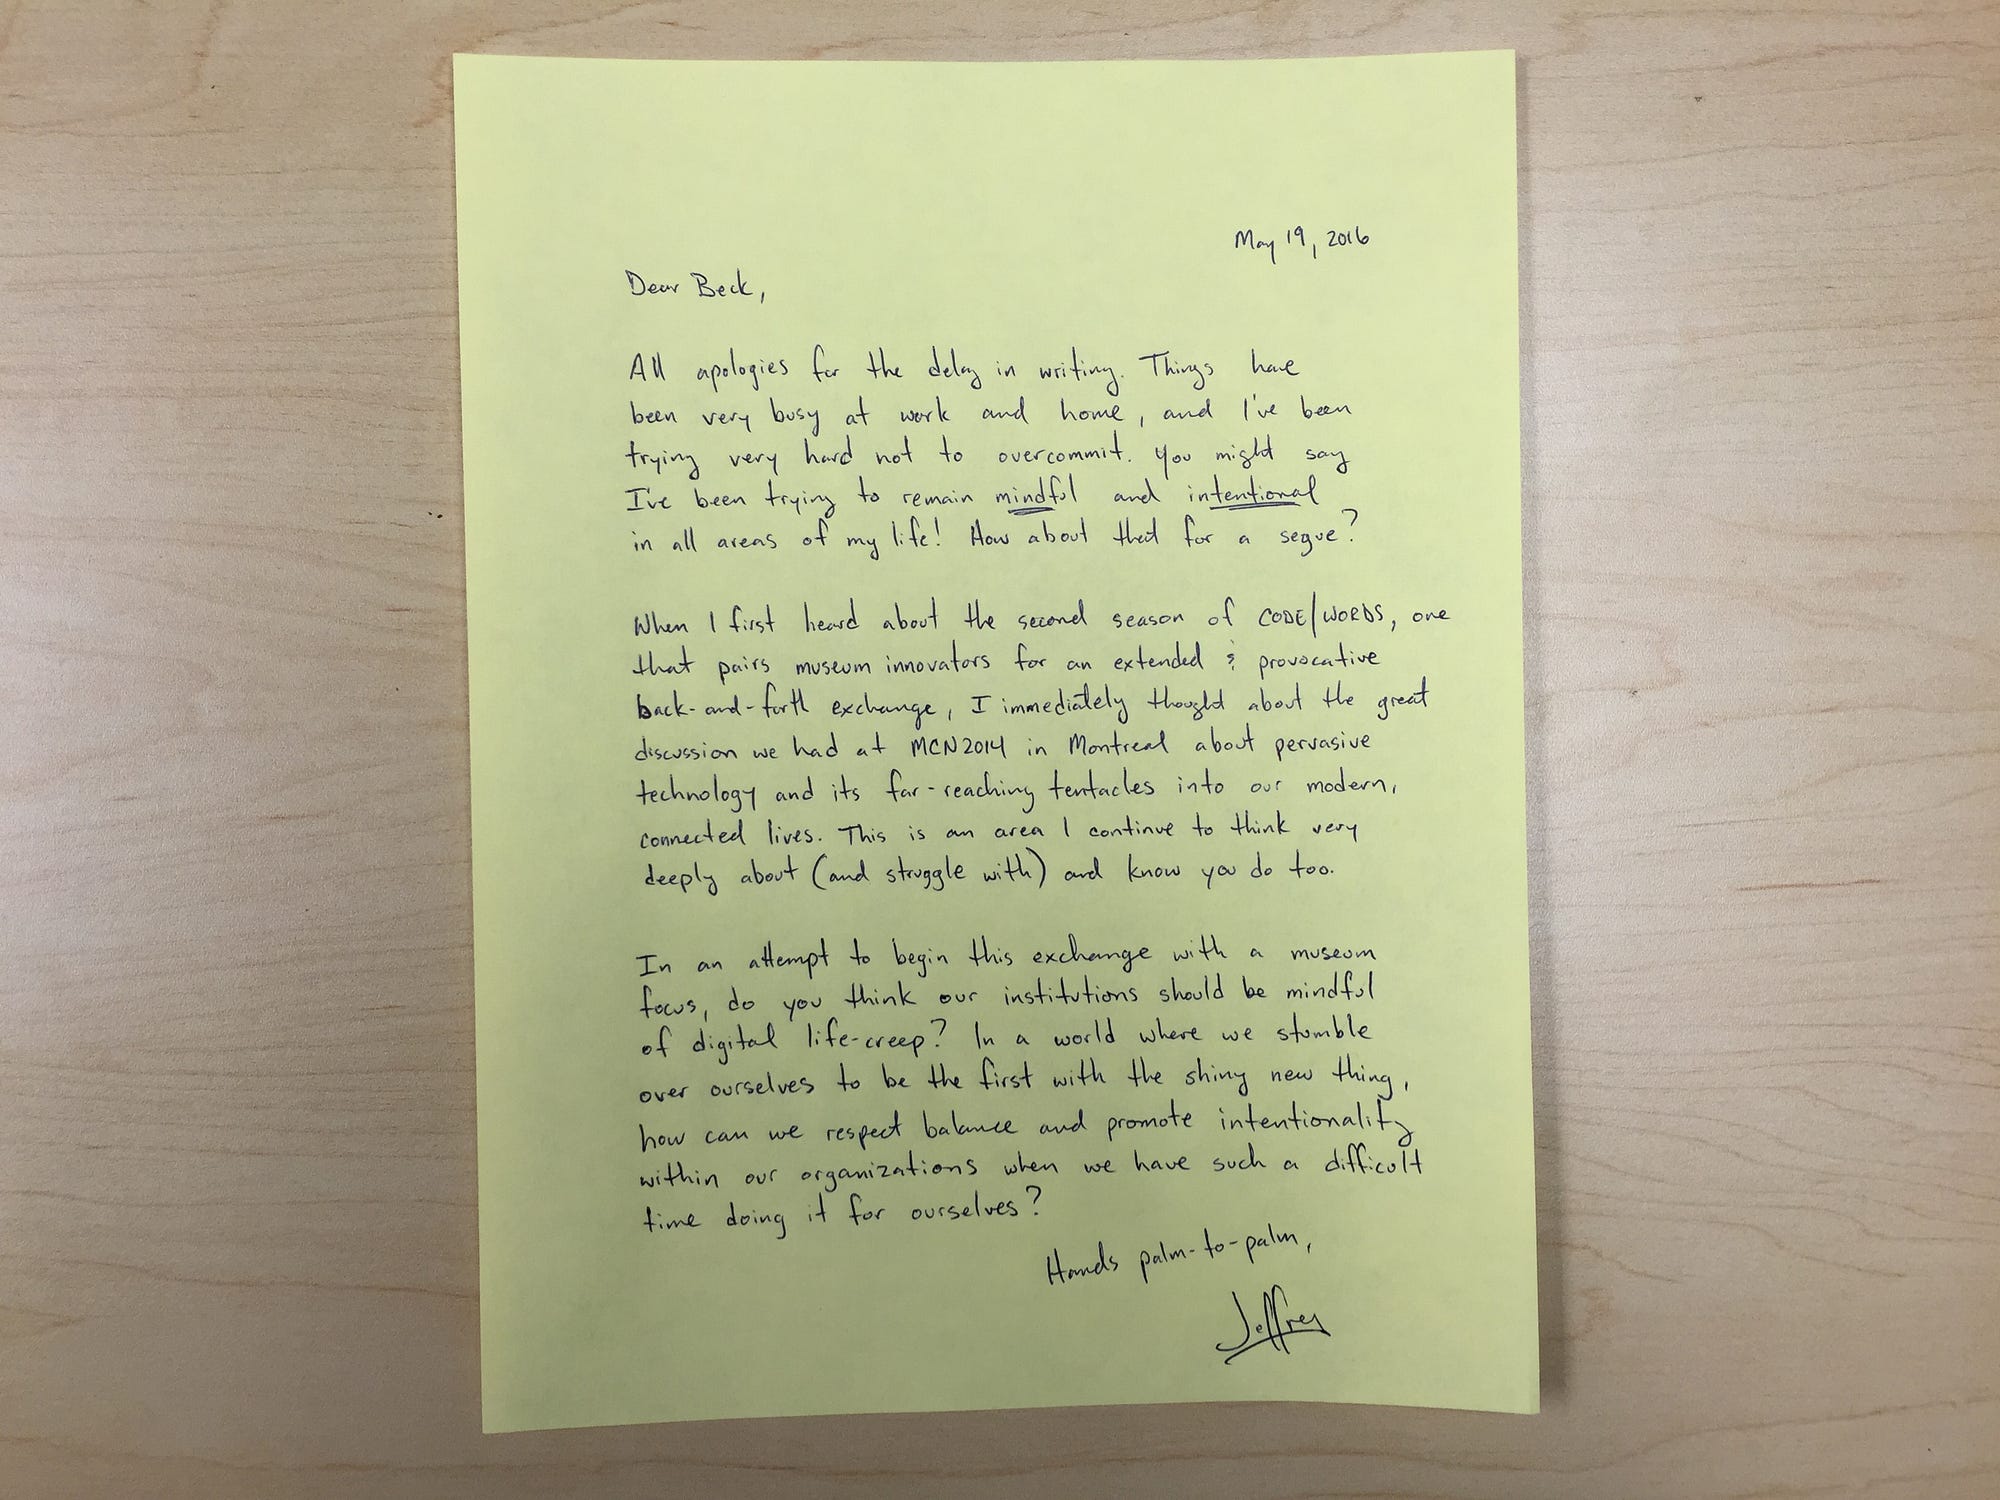 May 19, 2016
Dear Beck,
All apologies for the delay in writing. Things have
been very busy at work and home, and I've been
trying very hard not to overcommit. You might say
I've been trying to remain mindful and intentional
in all areas of my life! How about that for a segue?
When I first heard about the second season of CODE/WORDS, one
that pairs museum innovators for an extended & provocative
back-and-forth exchange, I immediately thought about the great
discussion we had at MCN2014 in Montreal about pervasive
technology and its far-reaching tentacles into our modern,
connected lives. This is an area I continue to think very
deeply about (and struggle with) and know you do too.
In an attempt to begin this exchange with a museum
focus, do you think our institutions should be mindful
of digital life-creep? In a world where we stumble
over ourselves to be the first with the shiny new thing,
how can we respect balance and promote intentionality
within our organizations when we have such a difficult
time doing it for ourselves?
Hands palm-to-palm,
Jeffrey